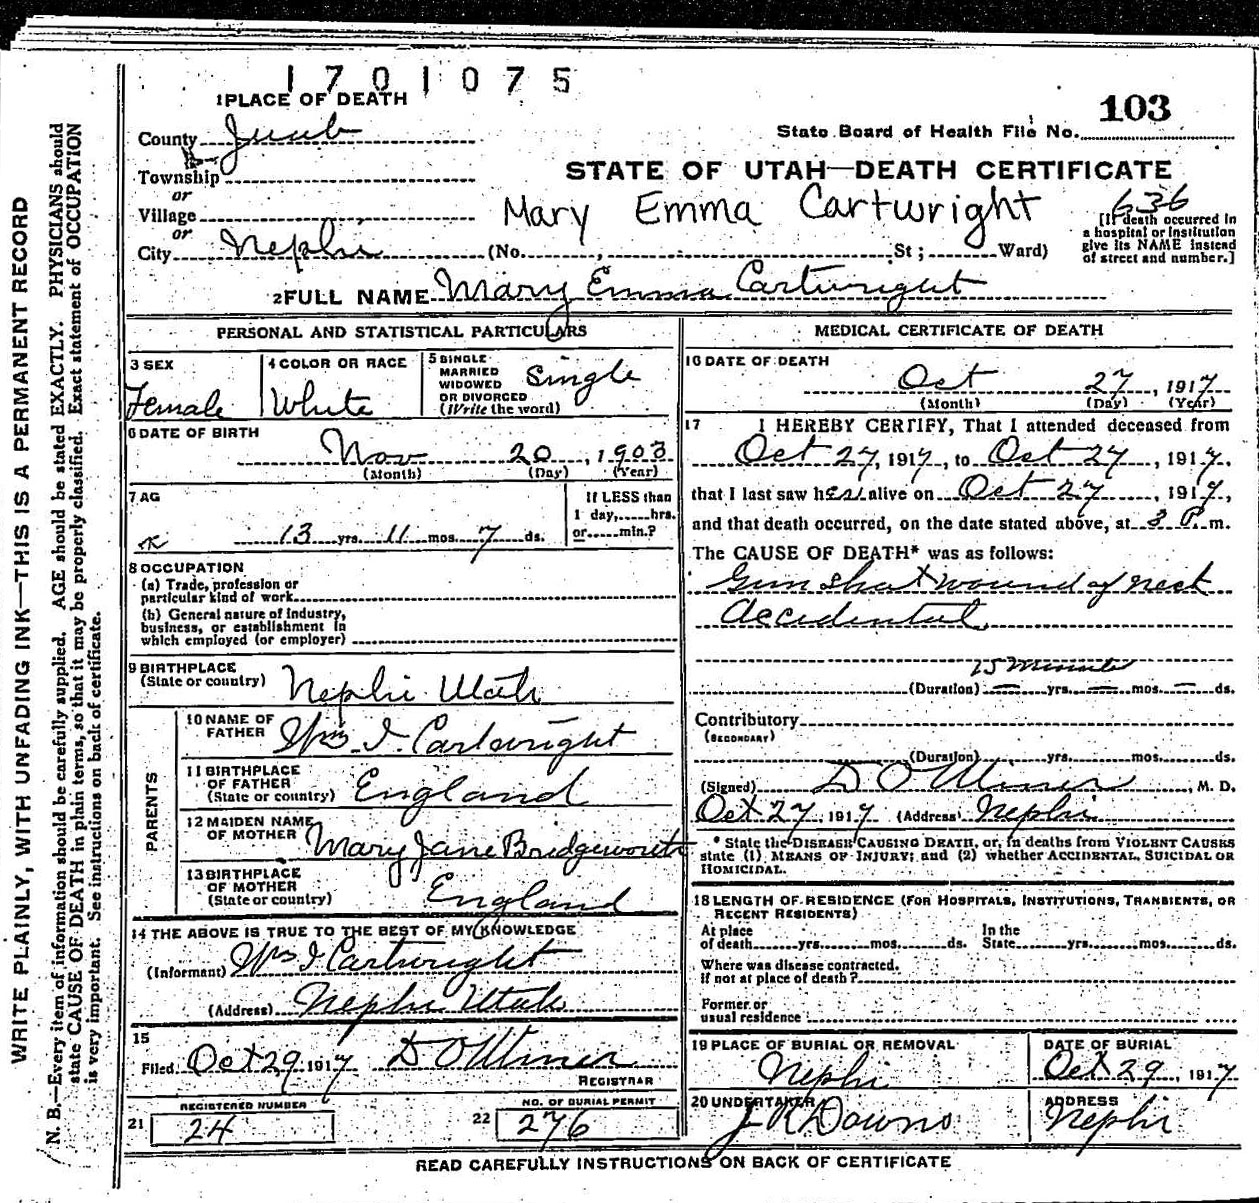 1701075
1 PLACE OF DEATH
103
State Board of Health File No.
County Juab
STATE OF UTAH—DEATH CERTIFICATE
Township
or
Village
Mary Emma Cartwright
636
[If death occurred in
a hospital or institution
give its NAME instead
of street and number.]
or
City Nephi (No. , St; Ward)
2 FULL NAME Mary Emma Cartwright
PERSONAL AND STATISTICAL PARTICULARS
3 SEX
Female
4 COLOR OR RACE
White
5 SINGLE
MARRIED
WIDOWED
OR DIVORCED
(Write the word)
Single
6 DATE OF BIRTH
Nov 20, 1903
(Month) (Day) (Year)
7 AG
13 yrs. 11 mos. 7 ds.
If LESS than
1 day, hrs.
or min.?
8 OCCUPATION
(a) Trade, profession or
particular kind of work
(b) General nature of industry,
business, or establishment in
which employed (or employer)
9 BIRTHPLACE
(State or country) Nephi Utah
PARENTS
10 NAME OF
FATHER Wm I. Cartwright
11 BIRTHPLACE
OF FATHER
(State or country) England
12 MAIDEN NAME
OF MOTHER Mary Jane Bridgeworth
13 BIRTHPLACE
OF MOTHER
(State or country) England
14 THE ABOVE IS TRUE TO THE BEST OF MY KNOWLEDGE
(Informant) Wm I Cartwright
(Address) Nephi Utah
15
Filed Oct 29 1917 D O Miner
REGISTRAR
21 REGISTERED NUMBER
24
22 NO. OF BURIAL PERMIT
276
MEDICAL CERTIFICATE OF DEATH
16 DATE OF DEATH
Oct 27, 1917
(Month) (Day) (Year)
17 I HEREBY CERTIFY, That I attended deceased from
Oct 27, 1917, to Oct 27, 1917,
that I last saw her alive on Oct 27, 1917,
and that death occurred, on the date stated above, at 3 P.m.
The CAUSE OF DEATH* was as follows:
Gun shot wound of neck
Accidental
15 Minutes
(Duration) — yrs. — mos. — ds.
Contributory
(SECONDARY)
(Duration) yrs. mos. ds.
(Signed) D O Miner, M. D.
Oct 27, 1917 (Address) Nephi
* State the DISEASE CAUSING DEATH, or, in deaths from VIOLENT CAUSES
state (1) MEANS OF INJURY; and (2) whether ACCIDENTAL, SUICIDAL OR
HOMICIDAL.
18 LENGTH OF RESIDENCE (FOR HOSPITALS, INSTITUTIONS, TRANSIENTS, OR
RECENT RESIDENTS)
At place
of death yrs. mos. ds.
In the
State yrs. mos. ds.
Where was disease contracted.
if not at place of death?
Former or
usual residence
19 PLACE OF BURIAL OR REMOVAL
Nephi
DATE OF BURIAL
Oct 29, 1917
20 UNDERTAKER
J R Downs
ADDRESS
Nephi
READ CAREFULLY INSTRUCTIONS ON BACK OF CERTIFICATE
WRITE PLAINLY, WITH UNFADING INK—THIS IS A PERMANENT RECORD
N. B.—Every item of information should be carefully supplied. AGE should be stated EXACTLY. PHYSICIANS should
state CAUSE OF DEATH in plain terms, so that it may be properly classified. Exact statement of OCCUPATION
is very important. See instructions on back of certificate.